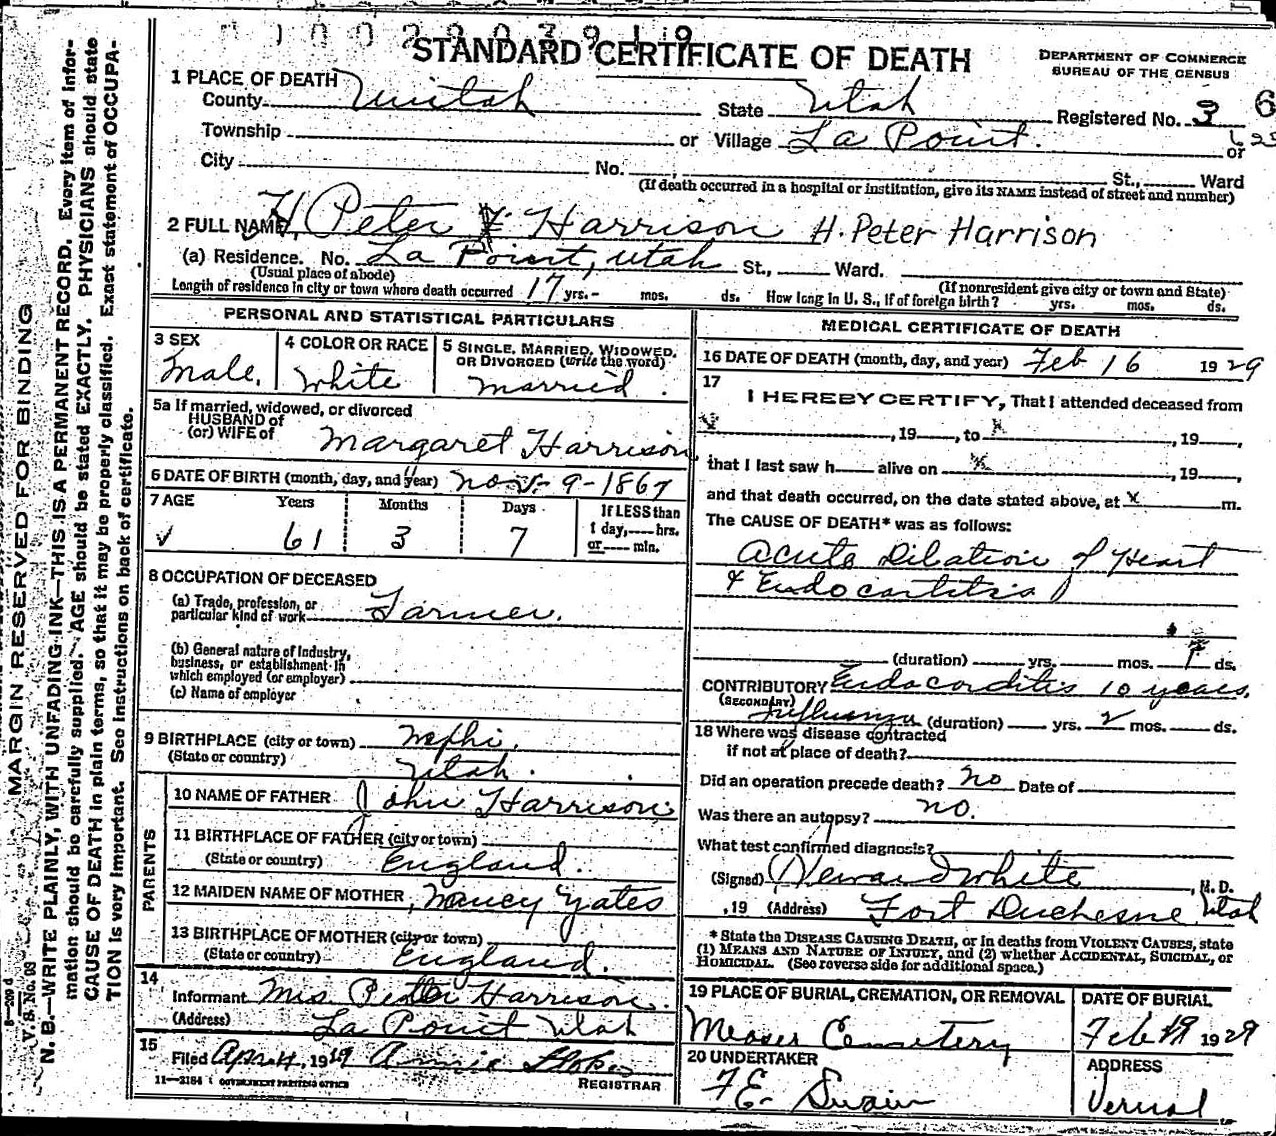 STANDARD CERTIFICATE OF DEATH
DEPARTMENT OF COMMERCE
BUREAU OF THE CENSUS
1 PLACE OF DEATH
County Uintah State Utah Registered No. 3 6
Township or Village La Point. or
City No. St., Ward
(If death occurred in a hospital or institution, give its NAME instead of street and number)
2 FULL NAME H Peter Harrison H. Peter Harrison
(a) Residence. No. La Point, Utah St., Ward.
(Usual place of abode) (If nonresident give city or town and State)
Length of residence in city or town where death occurred 17 yrs. mos. ds. How long in U. S., if of foreign birth? yrs. mos. ds.
PERSONAL AND STATISTICAL PARTICULARS
3 SEX
Male.
4 COLOR OR RACE
White
5 SINGLE, MARRIED, WIDOWED,
OR DIVORCED (write the word)
Married.
5a If married, widowed, or divorced
HUSBAND of
(or) WIFE of Margaret Harrison
6 DATE OF BIRTH (month, day, and year) Nov. 9 - 1867
7 AGE Years Months Days If LESS than
1 day, hrs.
or min.
61 3 7
8 OCCUPATION OF DECEASED
(a) Trade, profession, or
particular kind of work Farmer.
(b) General nature of industry,
business, or establishment in
which employed (or employer)
(c) Name of employer
9 BIRTHPLACE (city or town) Nephi.
(State or country) Utah.
PARENTS
10 NAME OF FATHER John Harrison
11 BIRTHPLACE OF FATHER (city or town)
(State or country) England.
12 MAIDEN NAME OF MOTHER Nancy Yates
13 BIRTHPLACE OF MOTHER (city or town)
(State or country) England.
14
Informant Mrs Peter Harrison.
(Address) La Point Utah
15
Filed Apr 4, 1929 Annie
REGISTRAR
11—3184 GOVERNMENT PRINTING OFFICE
MEDICAL CERTIFICATE OF DEATH
16 DATE OF DEATH (month, day, and year) Feb 16 1929
17
I HEREBY CERTIFY, That I attended deceased from
x , 19 , to x , 19 ,
that I last saw h alive on x , 19 ,
and that death occurred, on the date stated above, at x m.
The CAUSE OF DEATH* was as follows:
Acute Dilation of Heart
& Endocartitis
(duration) yrs. mos. ds.
CONTRIBUTORY Endocorditis 10 years.
(SECONDARY)
Influenza (duration) yrs. 2 mos. ds.
18 Where was disease contracted
if not at place of death?
Did an operation precede death? no Date of
Was there an autopsy? no.
What test confirmed diagnosis?
(Signed) White , M. D.
, 19 (Address) Fort Duchesne Utah
* State the DISEASE CAUSING DEATH, or in deaths from VIOLENT CAUSES, state
(1) MEANS AND NATURE OF INJURY, and (2) whether ACCIDENTAL, SUICIDAL, or
HOMICIDAL. (See reverse side for additional space.)
19 PLACE OF BURIAL, CREMATION, OR REMOVAL
Cemetery
DATE OF BURIAL
Feb 1929
20 UNDERTAKER
F E. Swain
ADDRESS
Vernal
MARGIN RESERVED FOR BINDING
V. S. No. 98
N. B.—WRITE PLAINLY, WITH UNFADING INK—THIS IS A PERMANENT RECORD. Every item of infor-
mation should be carefully supplied. AGE should be stated EXACTLY. PHYSICIANS should state
CAUSE OF DEATH in plain terms, so that it may be properly classified. Exact statement of OCCUPA-
TION is very important. See instructions on back of certificate.